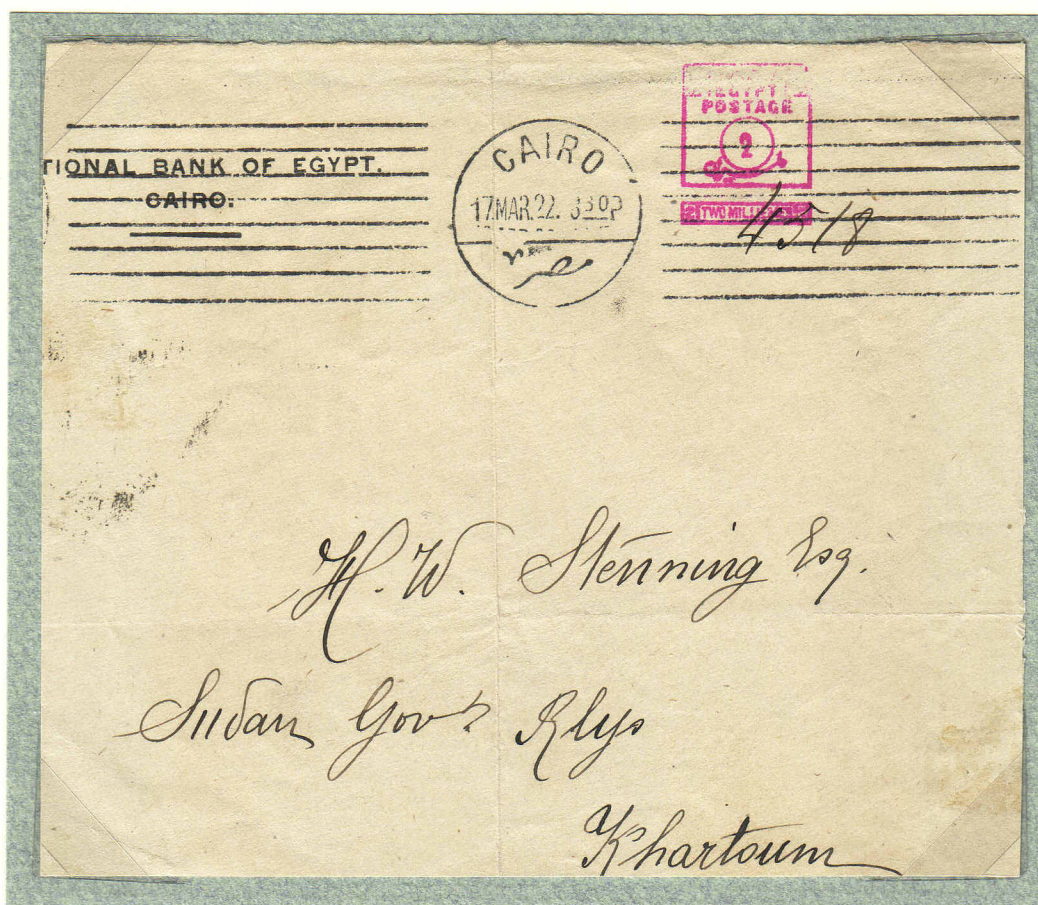 TIONAL BANK OF EGYPT.
CAIRO.
CAIRO
17.MAR.22. 330P
EGYPT
POSTAGE
2
TWO MILLIEMES
4518
H. W. Stenning Esq.
Sudan Govt Rlys
Khartoum